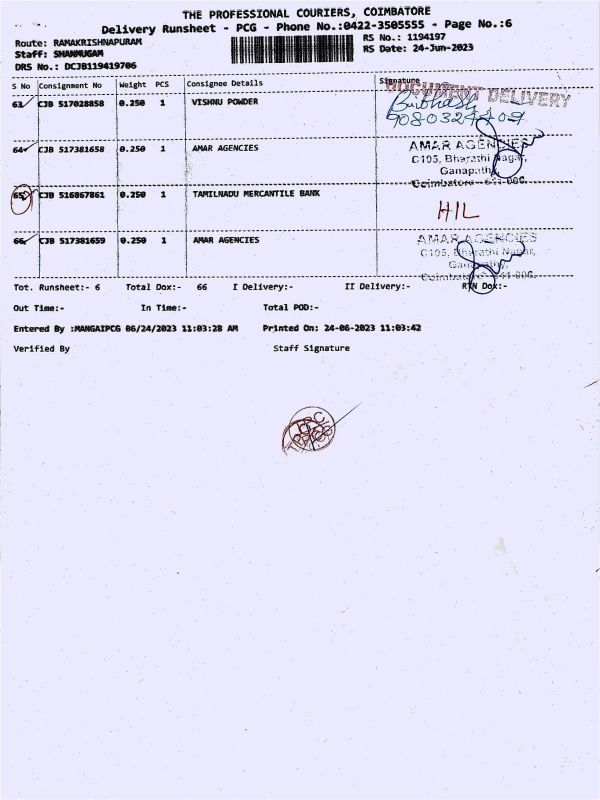 THE PROFESSIONAL COURIERS, COIMBATORE
Delivery Runsheet - PCG - Phone No.:0422-3505555 - Page No.:6
Route: RAMAKRISHNAPURAM
RS No.: 1194197
Staff: SHANMUGAM
RS Date: 24-Jun-2023
DRS No.: DCJB119419706
S No Consignment No Weight PCS Consignee Details Signature
DOCUMENT DELIVERY
63 CJB 517028858 0.250 1 VISHNU POWDER
64 CJB 517381658 0.250 1 AMAR AGENCIES
AMAR AGENCIES
C105, Bharathi Nagar,
Ganapathy,
Coimbatore - 641 006.
65 CJB 516867861 0.250 1 TAMILNADU MERCANTILE BANK
HIL
66 CJB 517381659 0.250 1 AMAR AGENCIES
AMAR AGENCIES
C105, Bharathi Nagar,
Ganapathy,
Coimbatore - 641 006.
Tot. Runsheet:- 6 Total Dox:- 66 I Delivery:- II Delivery:- RTN Dox:-
Out Time:- In Time:- Total POD:-
Entered By :MANGAIPCG 06/24/2023 11:03:28 AM Printed On: 24-06-2023 11:03:42
Verified By Staff Signature